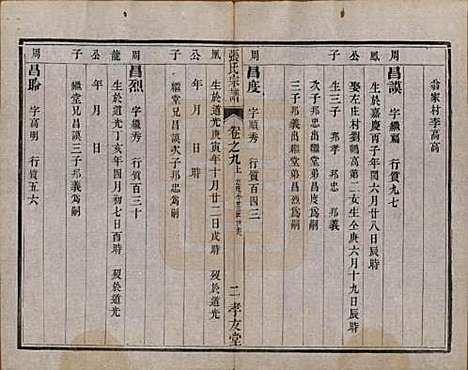 翁家村李高高
周 昌謨 字纘扁 行贊九七
鳳 生於嘉慶丙子年閏六月廿八辰時
公 娶左庄村劉鶴高第二女生仝庚六月十九日辰時
子 生三子 邦孝 邦忠 邦義
次子邦忠繼堂弟昌度為嗣
三子邦義繼堂弟昌烈為嗣
周 昌度 字順秀 行贊百四三
鳳 生於道光庚寅年十月廿二日戌時 歿於道光
公 年 月 日
子 繼堂兄昌謨次子邦忠為嗣
張氏宗譜 卷之九上 二 孝友堂
周 昌烈 字 秀 行贊百三十
龍 生於道光丁亥年四月初七日酉時 歿於道光
公 年 月 日
子 繼堂兄昌謨三子邦義為嗣
周 昌聆 字高明 行贊五六